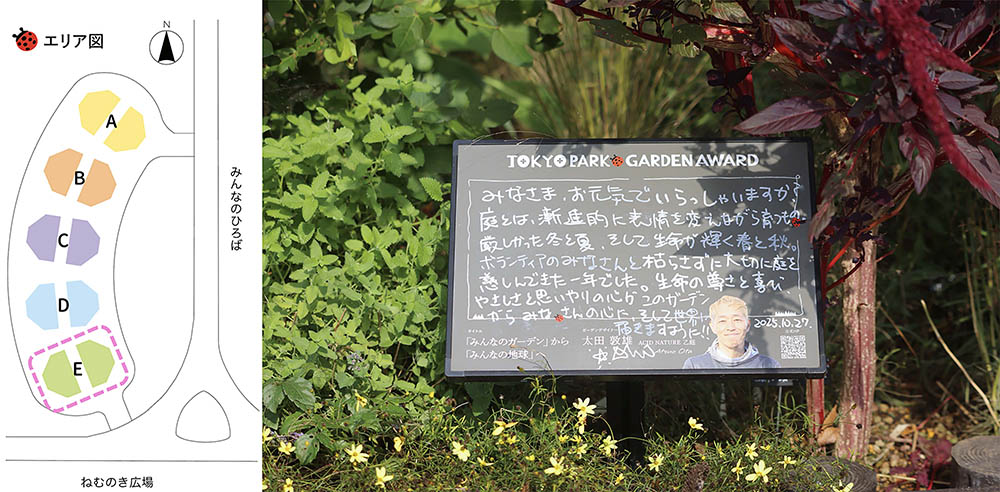 エリア図
N
A
B
C
D
E
みんなのひろば
ねむのき広場
TOKYO PARK GARDEN AWARD
みなさま、お元気でいらっしゃいますか。
庭とは、漸進的に表情を変えながら育つもの。
厳しかった冬と夏、そして生命が輝く春と秋。
ボランティアのみなさんと枯らさずに大切に庭を
慈しんできた一年でした。生命の尊さと喜び
やさしさと思いやりの心がこのガーデン
からみなさんの心に、そして世界に
届きますように!!
2025.10.27.
タイトル
「みんなのガーデン」から
「みんなの地球」へ
ガーデンデザイナー
太田 敦雄 ACID NATURE 乙庭
Atsuo Ota